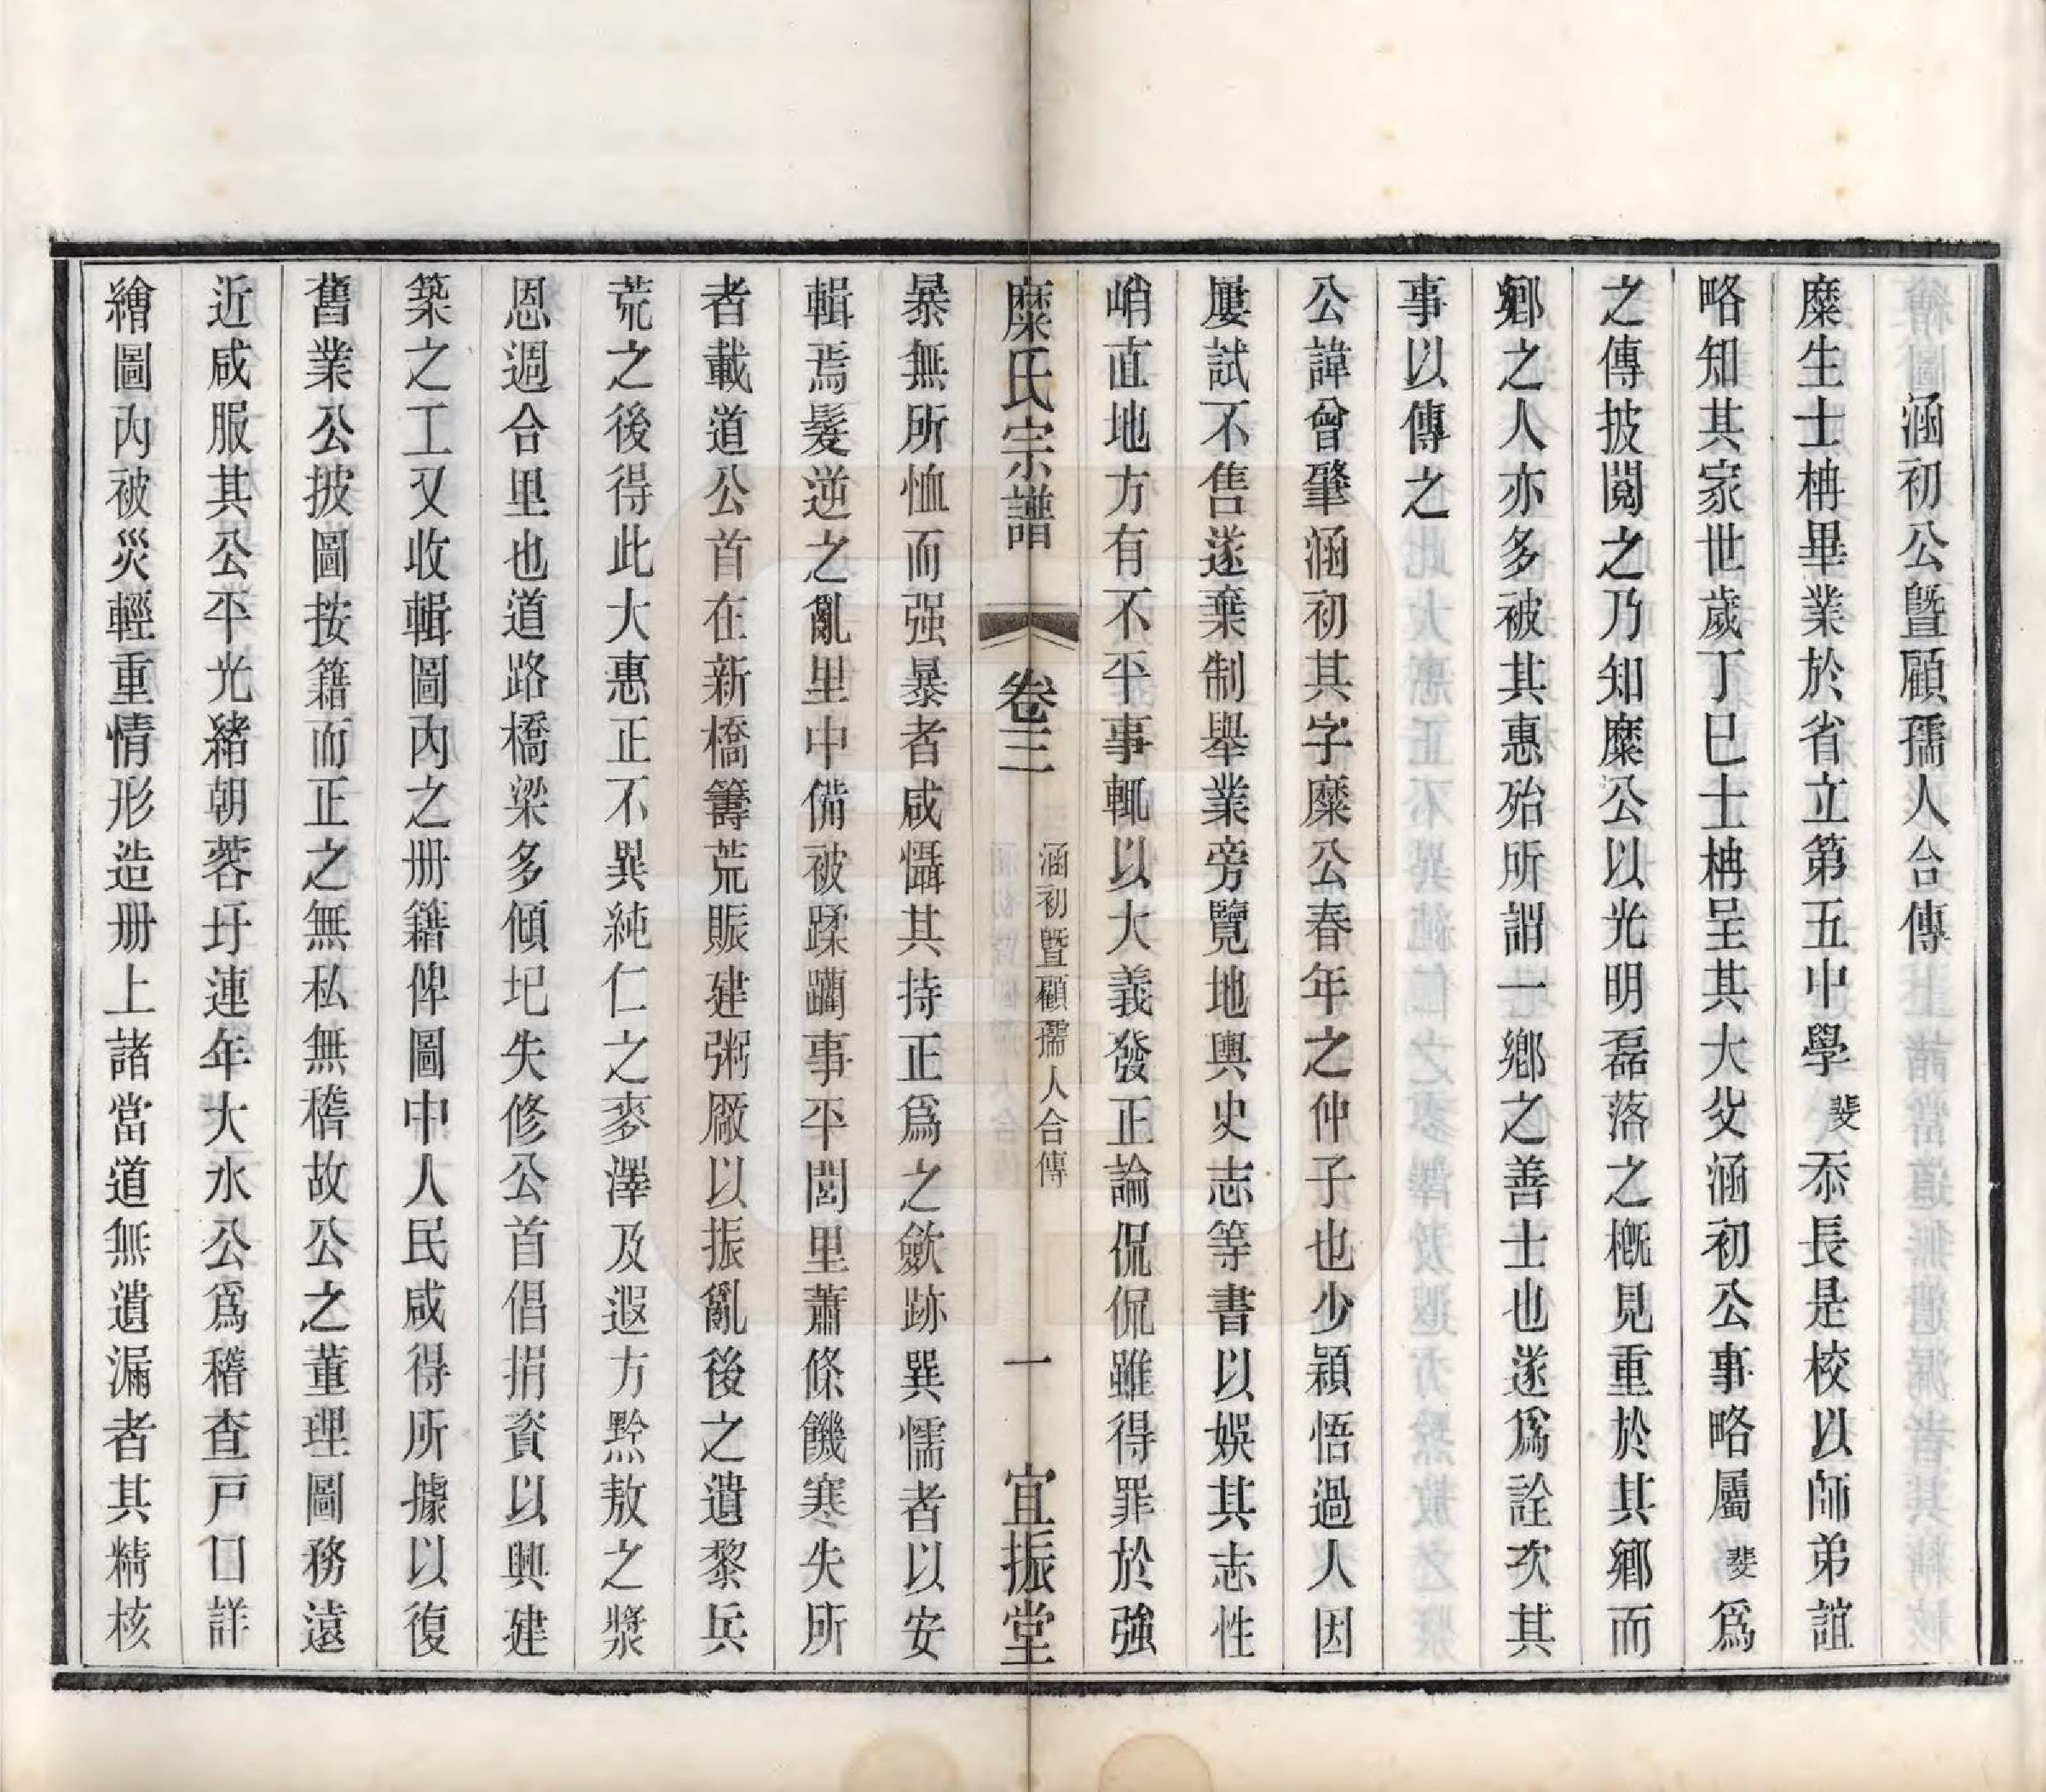 涵初公暨顧孺人合傳
糜生士柟畢業於省立第五中學斐忝長是校以師弟誼
略知其家世歲丁巳士柟呈其大父涵初公事略屬斐爲
之傳披閱之乃知糜公以光明磊落之概見重於其鄉而
鄉之人亦多被其惠殆所謂一鄉之善士也遂爲詮次其
事以傳之
公諱曾肇涵初其字糜公春年之仲子也少穎悟過人因
屢試不售遂棄制舉業旁覽地輿史志等書以娛其志性
峭直地方有不平事輒以大義發正論侃侃雖得罪於強
糜氏宗譜 卷三 涵初暨顧孺人合傳 一 宜振堂
暴無所恤而强暴者咸懾其持正爲之歛跡巽懦者以安
輯焉髮逆之亂里中備被蹂躪事平閭里蕭條饑寒失所
者載道公首在新橋籌荒賑建粥厰以振亂後之遺黎兵
荒之後得此大惠正不異純仁之麥澤及遐方黙敖之漿
恩週合里也道路橋梁多傾圮失修公首倡捐資以興建
築之工又收輯圖內之册籍俾圖中人民咸得所據以復
舊業公披圖按籍而正之無私無稽故公之董理圖務遠
近咸服其公平光緒朝蓉圩連年大水公爲稽查戸口詳
繪圖內被災輕重情形造册上諸當道無遺漏者其精核